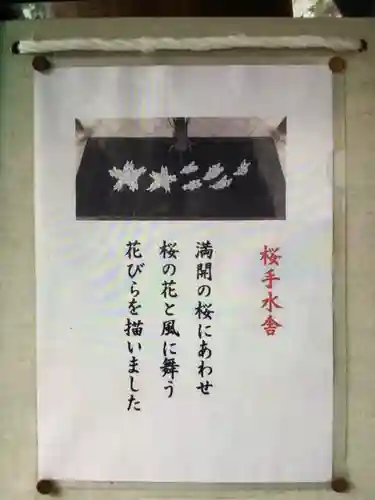 桜手水舎
満開の桜にあわせ
桜の花と風に舞う
花びらを描いました